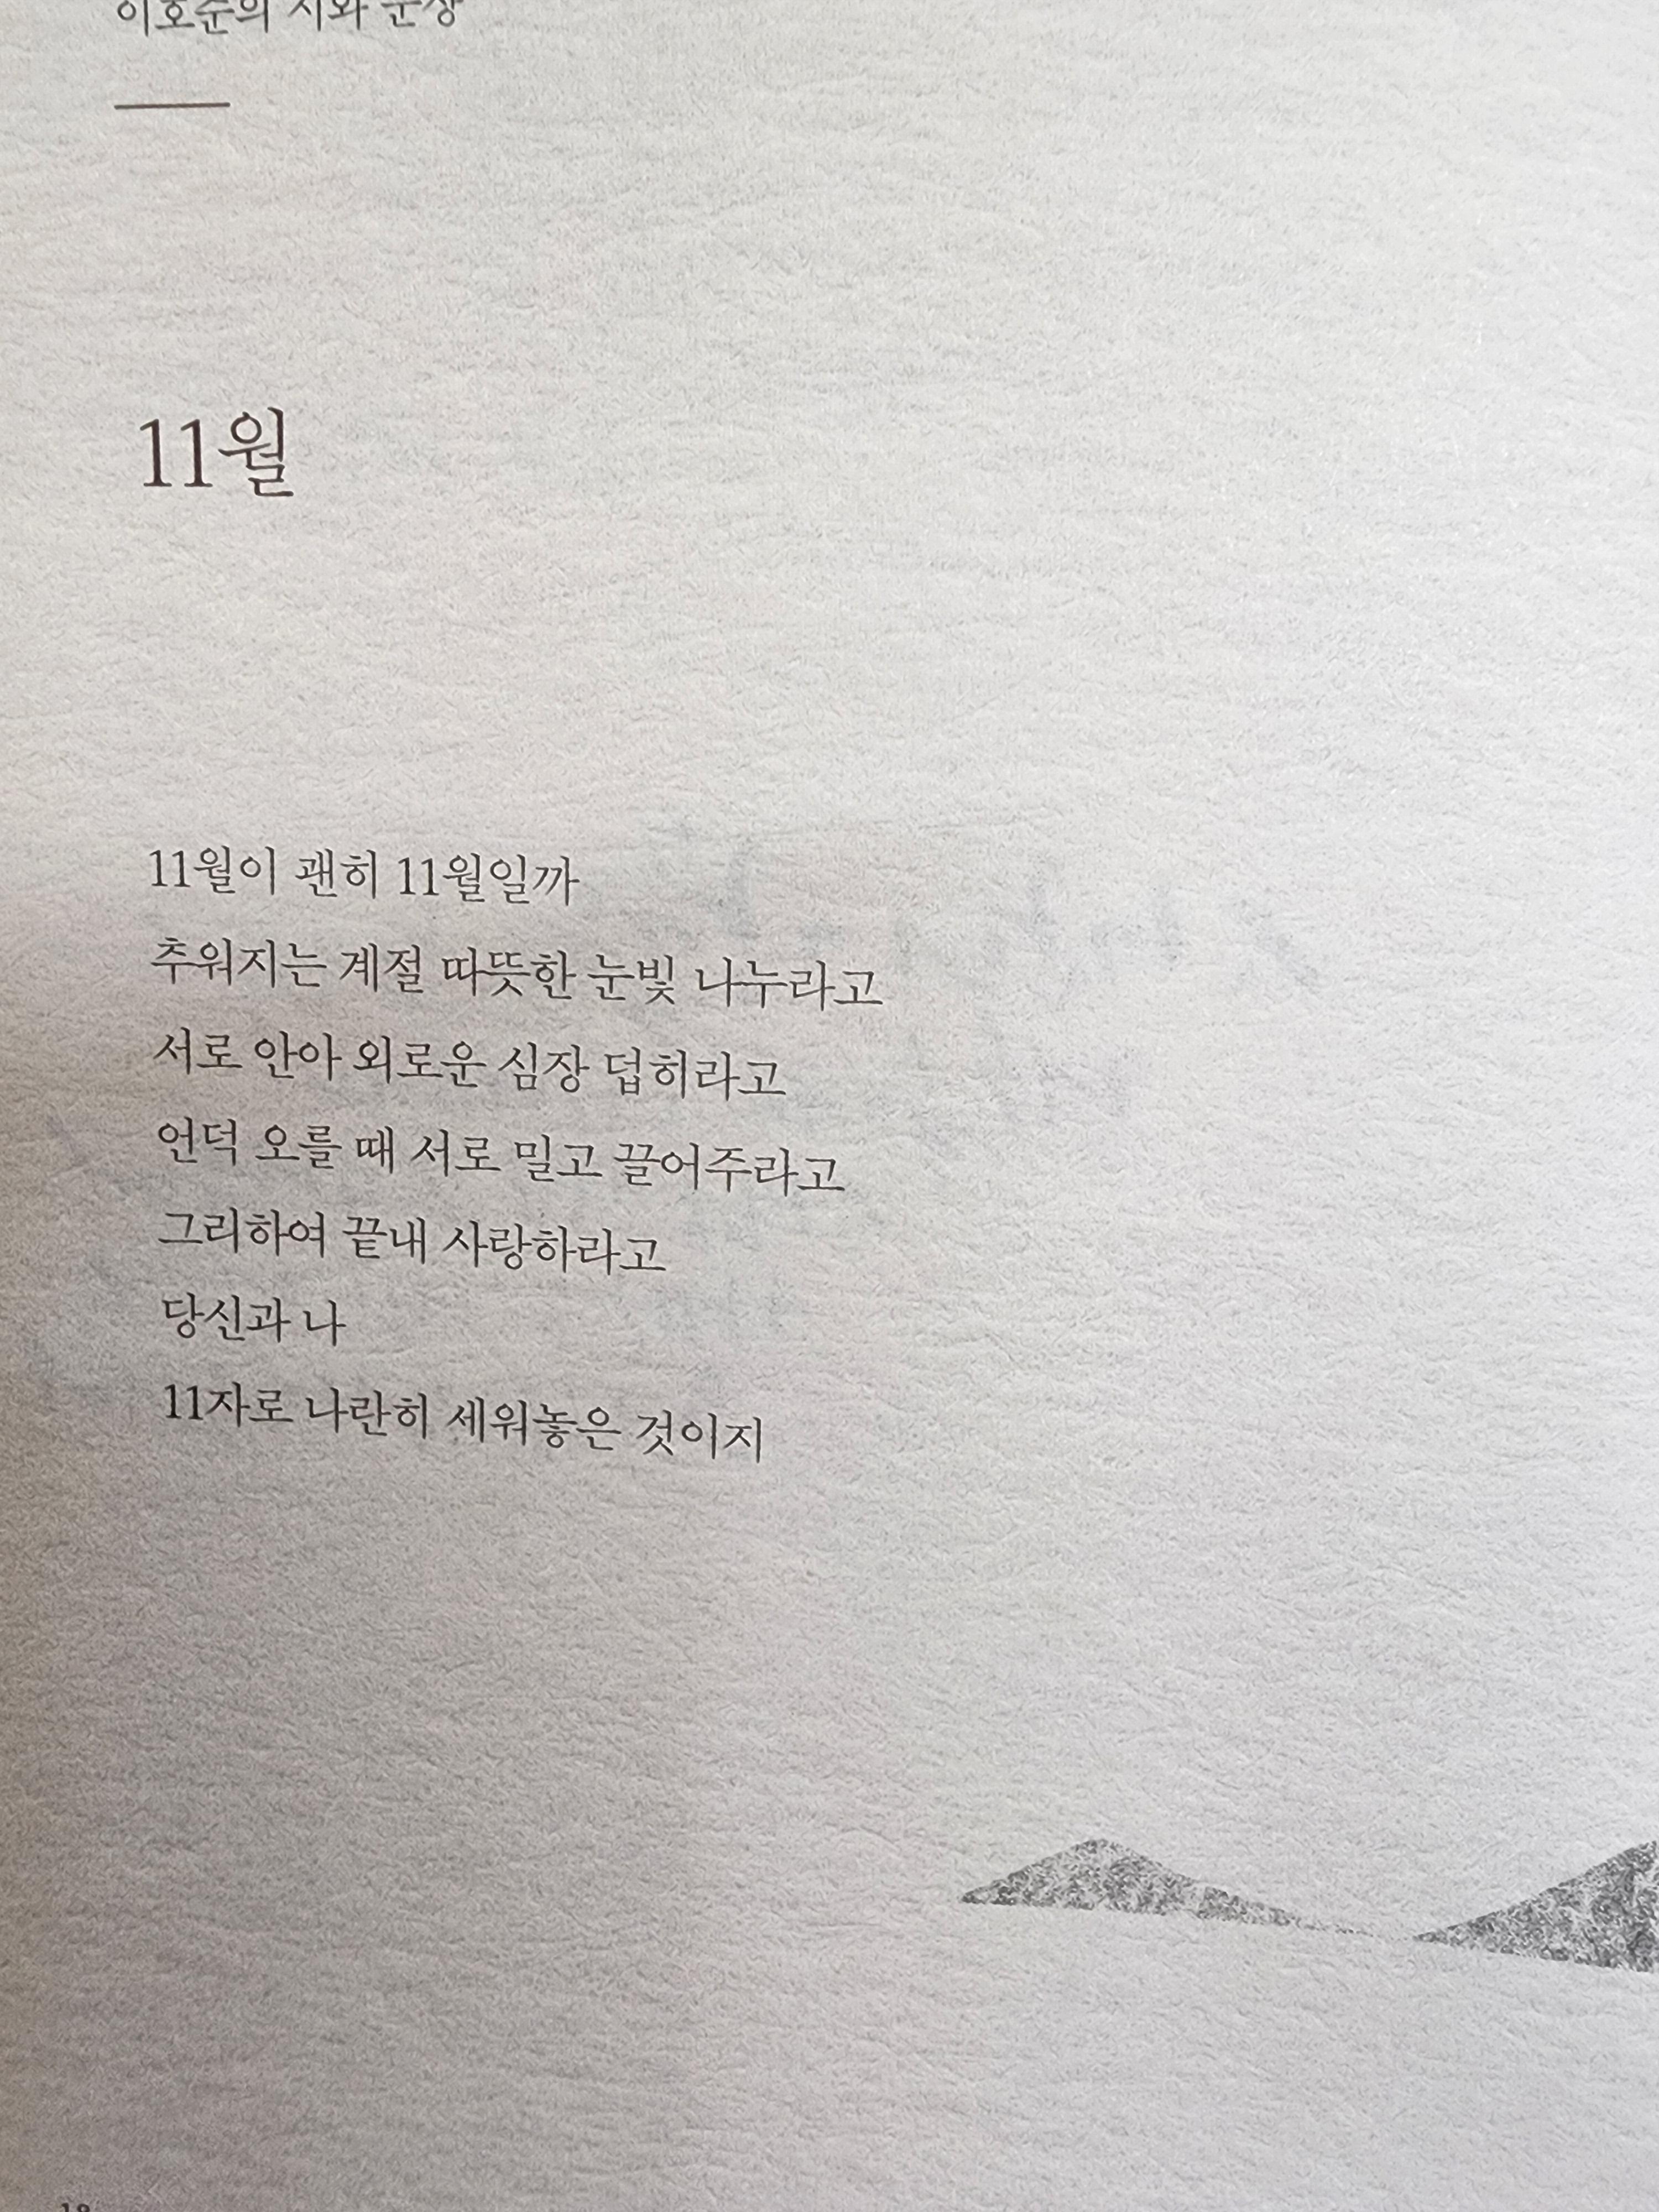 이호준의 시와 문장
11월
11월이 괜히 11월일까
추워지는 계절 따뜻한 눈빛 나누라고
서로 안아 외로운 심장 덥히라고
언덕 오를 때 서로 밀고 끌어주라고
그리하여 끝내 사랑하라고
당신과 나
11자로 나란히 세워놓은 것이지